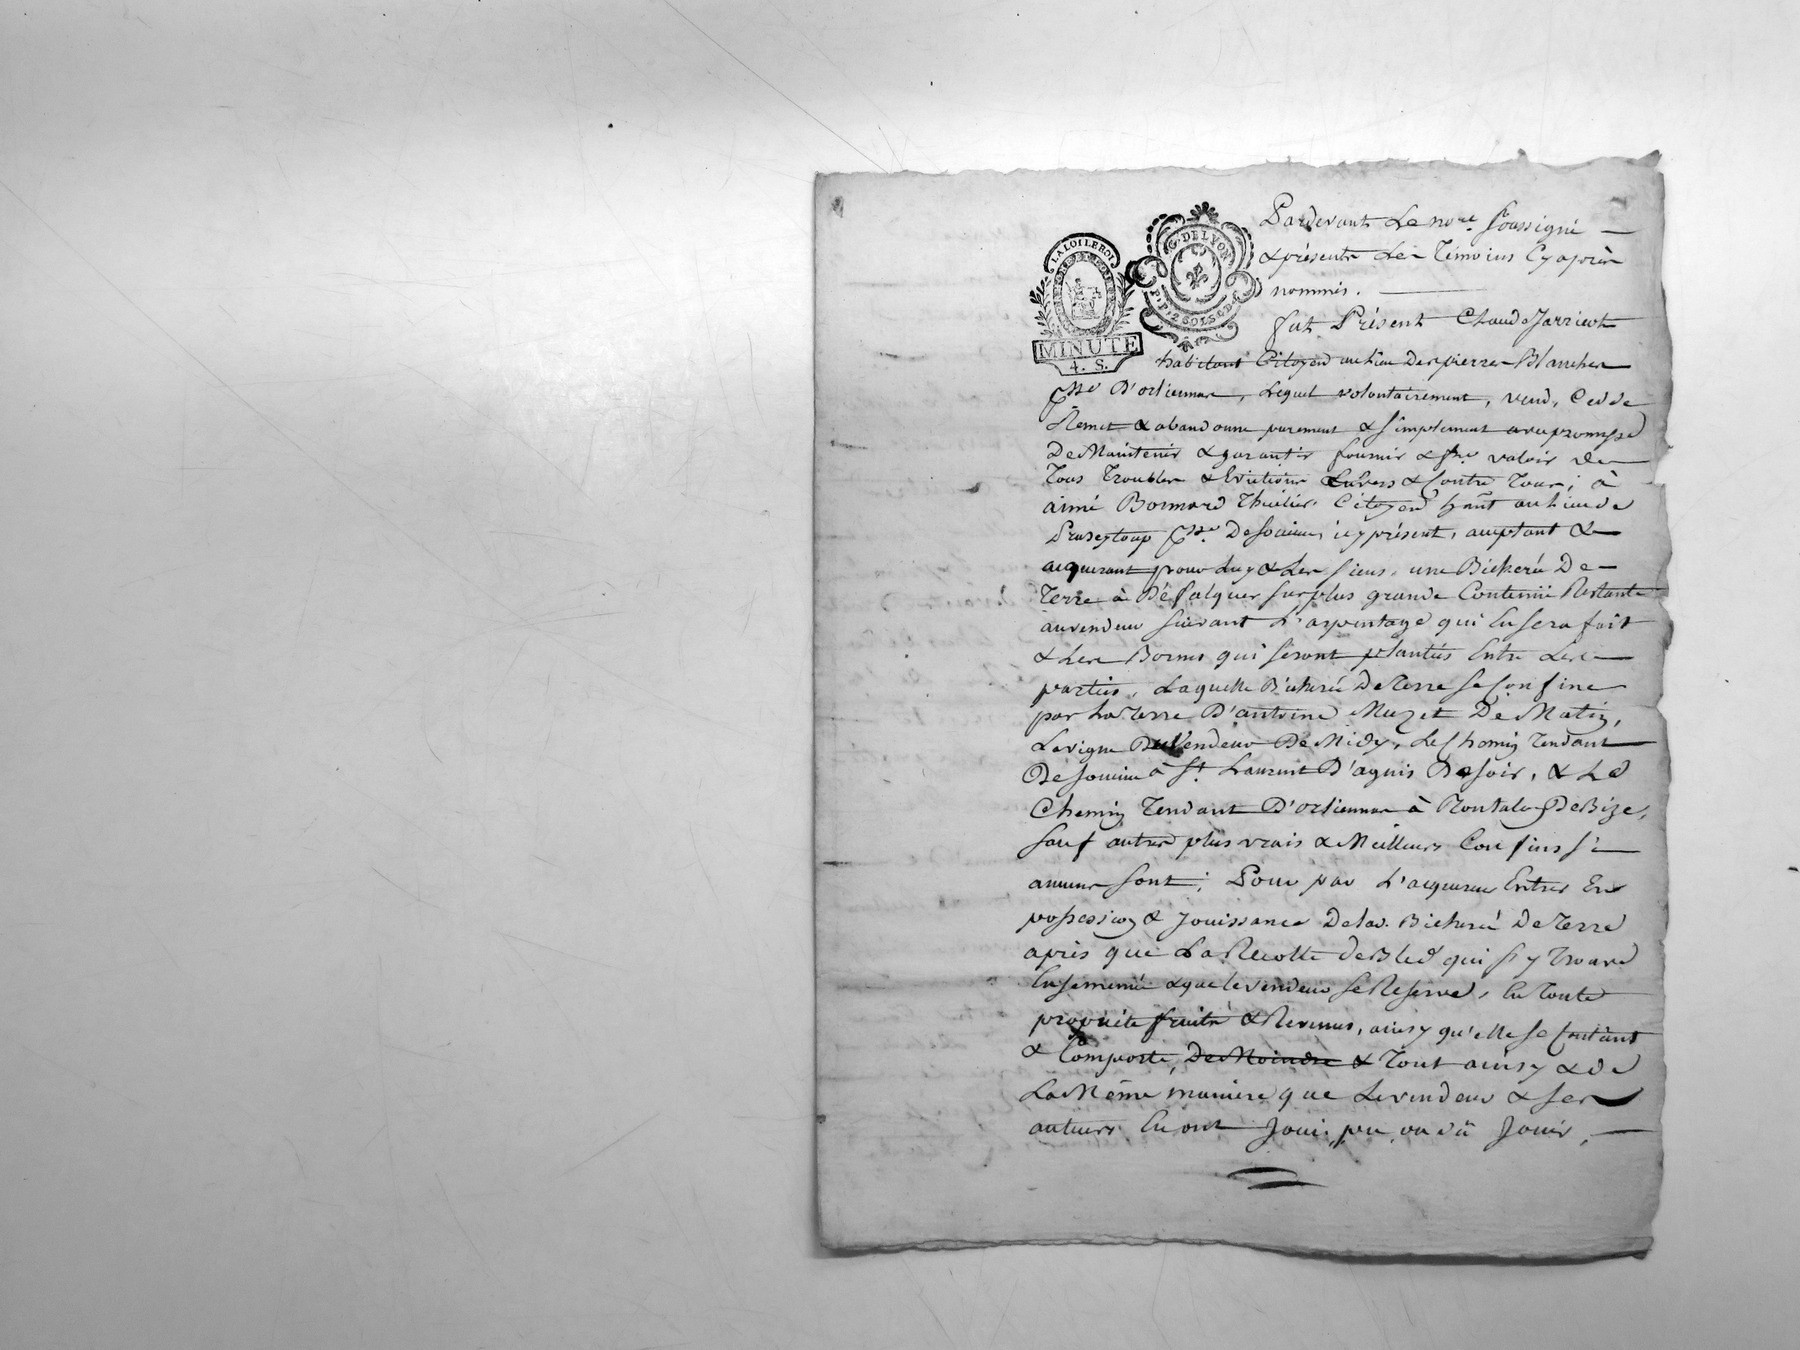 Pardevant Le nore. soussigné
& présents Les Témoins Cy après
nommés.
LA LOI LE ROI
G. DE LYON
P. P. 2 SOLS 6 D
MINUTE
4. S.
fut Présent Claude Jarricot
habitant Citoyen au lieu Des pierres Blanches
Psse D'orliennas, Lequel volontairement, vend, Cedde
Remet & abandonne purement & simplement avec promesse
De Maintenir & garantir fournir & fre valoir de
Tous Troubles & Evictions Envers & Contre Tous; à
aimé Bonnard Thuilier Citoyen hant au lieu de
psse. De Soucieu, icy présent, acceptant &
acquerant pour Luy & Les siens, une Bicherée De
Terre à Défalquer sur plus grande Contenüe Restante
au vendeur suivant L'arpentage qui En sera fait
& Les Bornes qui seront plantées Entre Les
parties, Laquelle Bicherée De Terre se Confine
par La Terre D'antoine Muzet De Matin,
La vigne Du Vendeur De Midy, Le Chemin Tendant
De Soucieu à St. Laurent D'agnis De soir, & Le
Chemin Tendant D'orliennas à Montaley De Bize,
sauf autres plus vrais & Meilleurs Confins si
aucuns sont; Pour par L'acquereur Entrer En
possession & Jouissance De lad. Bicherée De Terre
après que La Recolte de Bled qui s'y Trouve
Ensemencée & que le vendeur se Reserve, En Toute
propriété fruits & Revenus, ainsy qu'elle se Contient
& Comporte, De Moindre & Tout ainsy & de
La Même maniere que Le vendeur & ses
auteurs En ont Joui, pu ou dû Jouir,